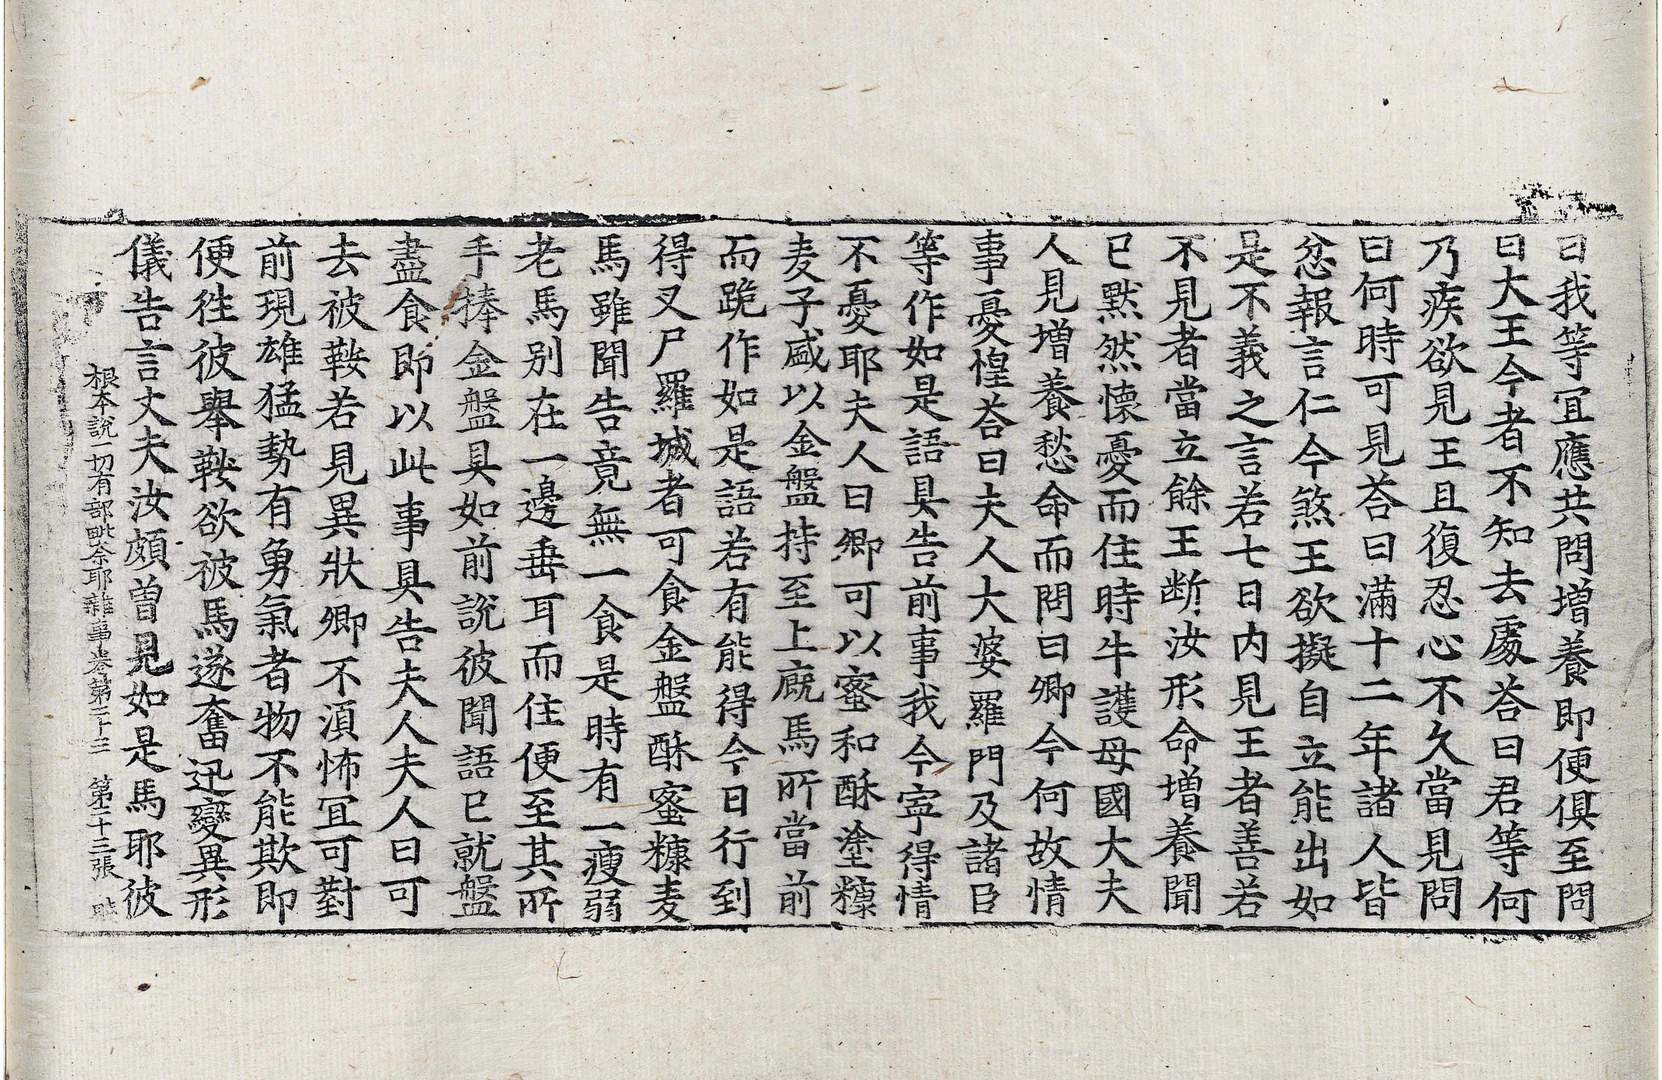 曰我等宜應共問增養即便俱至問
曰大王今者不知去處荅曰君等何
乃疾欲見王且復忍心不久當見問
曰何時可見荅曰滿十二年諸人皆
忿報言仁今煞王欲擬自立能出如
是不義之言若七日內見王者善若
不見者當立餘王断汝形命增養聞
已默然懷憂而住時牛護母國大夫
人見增養愁命而問曰卿今何故情
事憂惶荅曰夫人大婆羅門及諸臣
等作如是語具告前事我今寧得情
不憂耶夫人曰卿可以蜜和酥塗𪎊
麦子盛以金盤持至上廐馬所當前
而跪作如是語若有能得今日行到
得叉尸羅城者可食金盤酥蜜𪎊麦
馬雖聞告竟無一食是時有一瘦弱
老馬別在一邊垂耳而住便至其所
手捧金盤具如前說彼聞語已就盤
盡食即以此事具告夫人夫人曰可
去被鞍若見異狀卿不湏怖宜可對
前現雄猛勢有勇氣者物不能欺即
便往彼舉鞍欲被馬遂奮迅變異形
儀告言丈夫汝頗曾見如是馬耶彼
根本說一切有部毗奈耶雜事卷第二十三 第二十三張